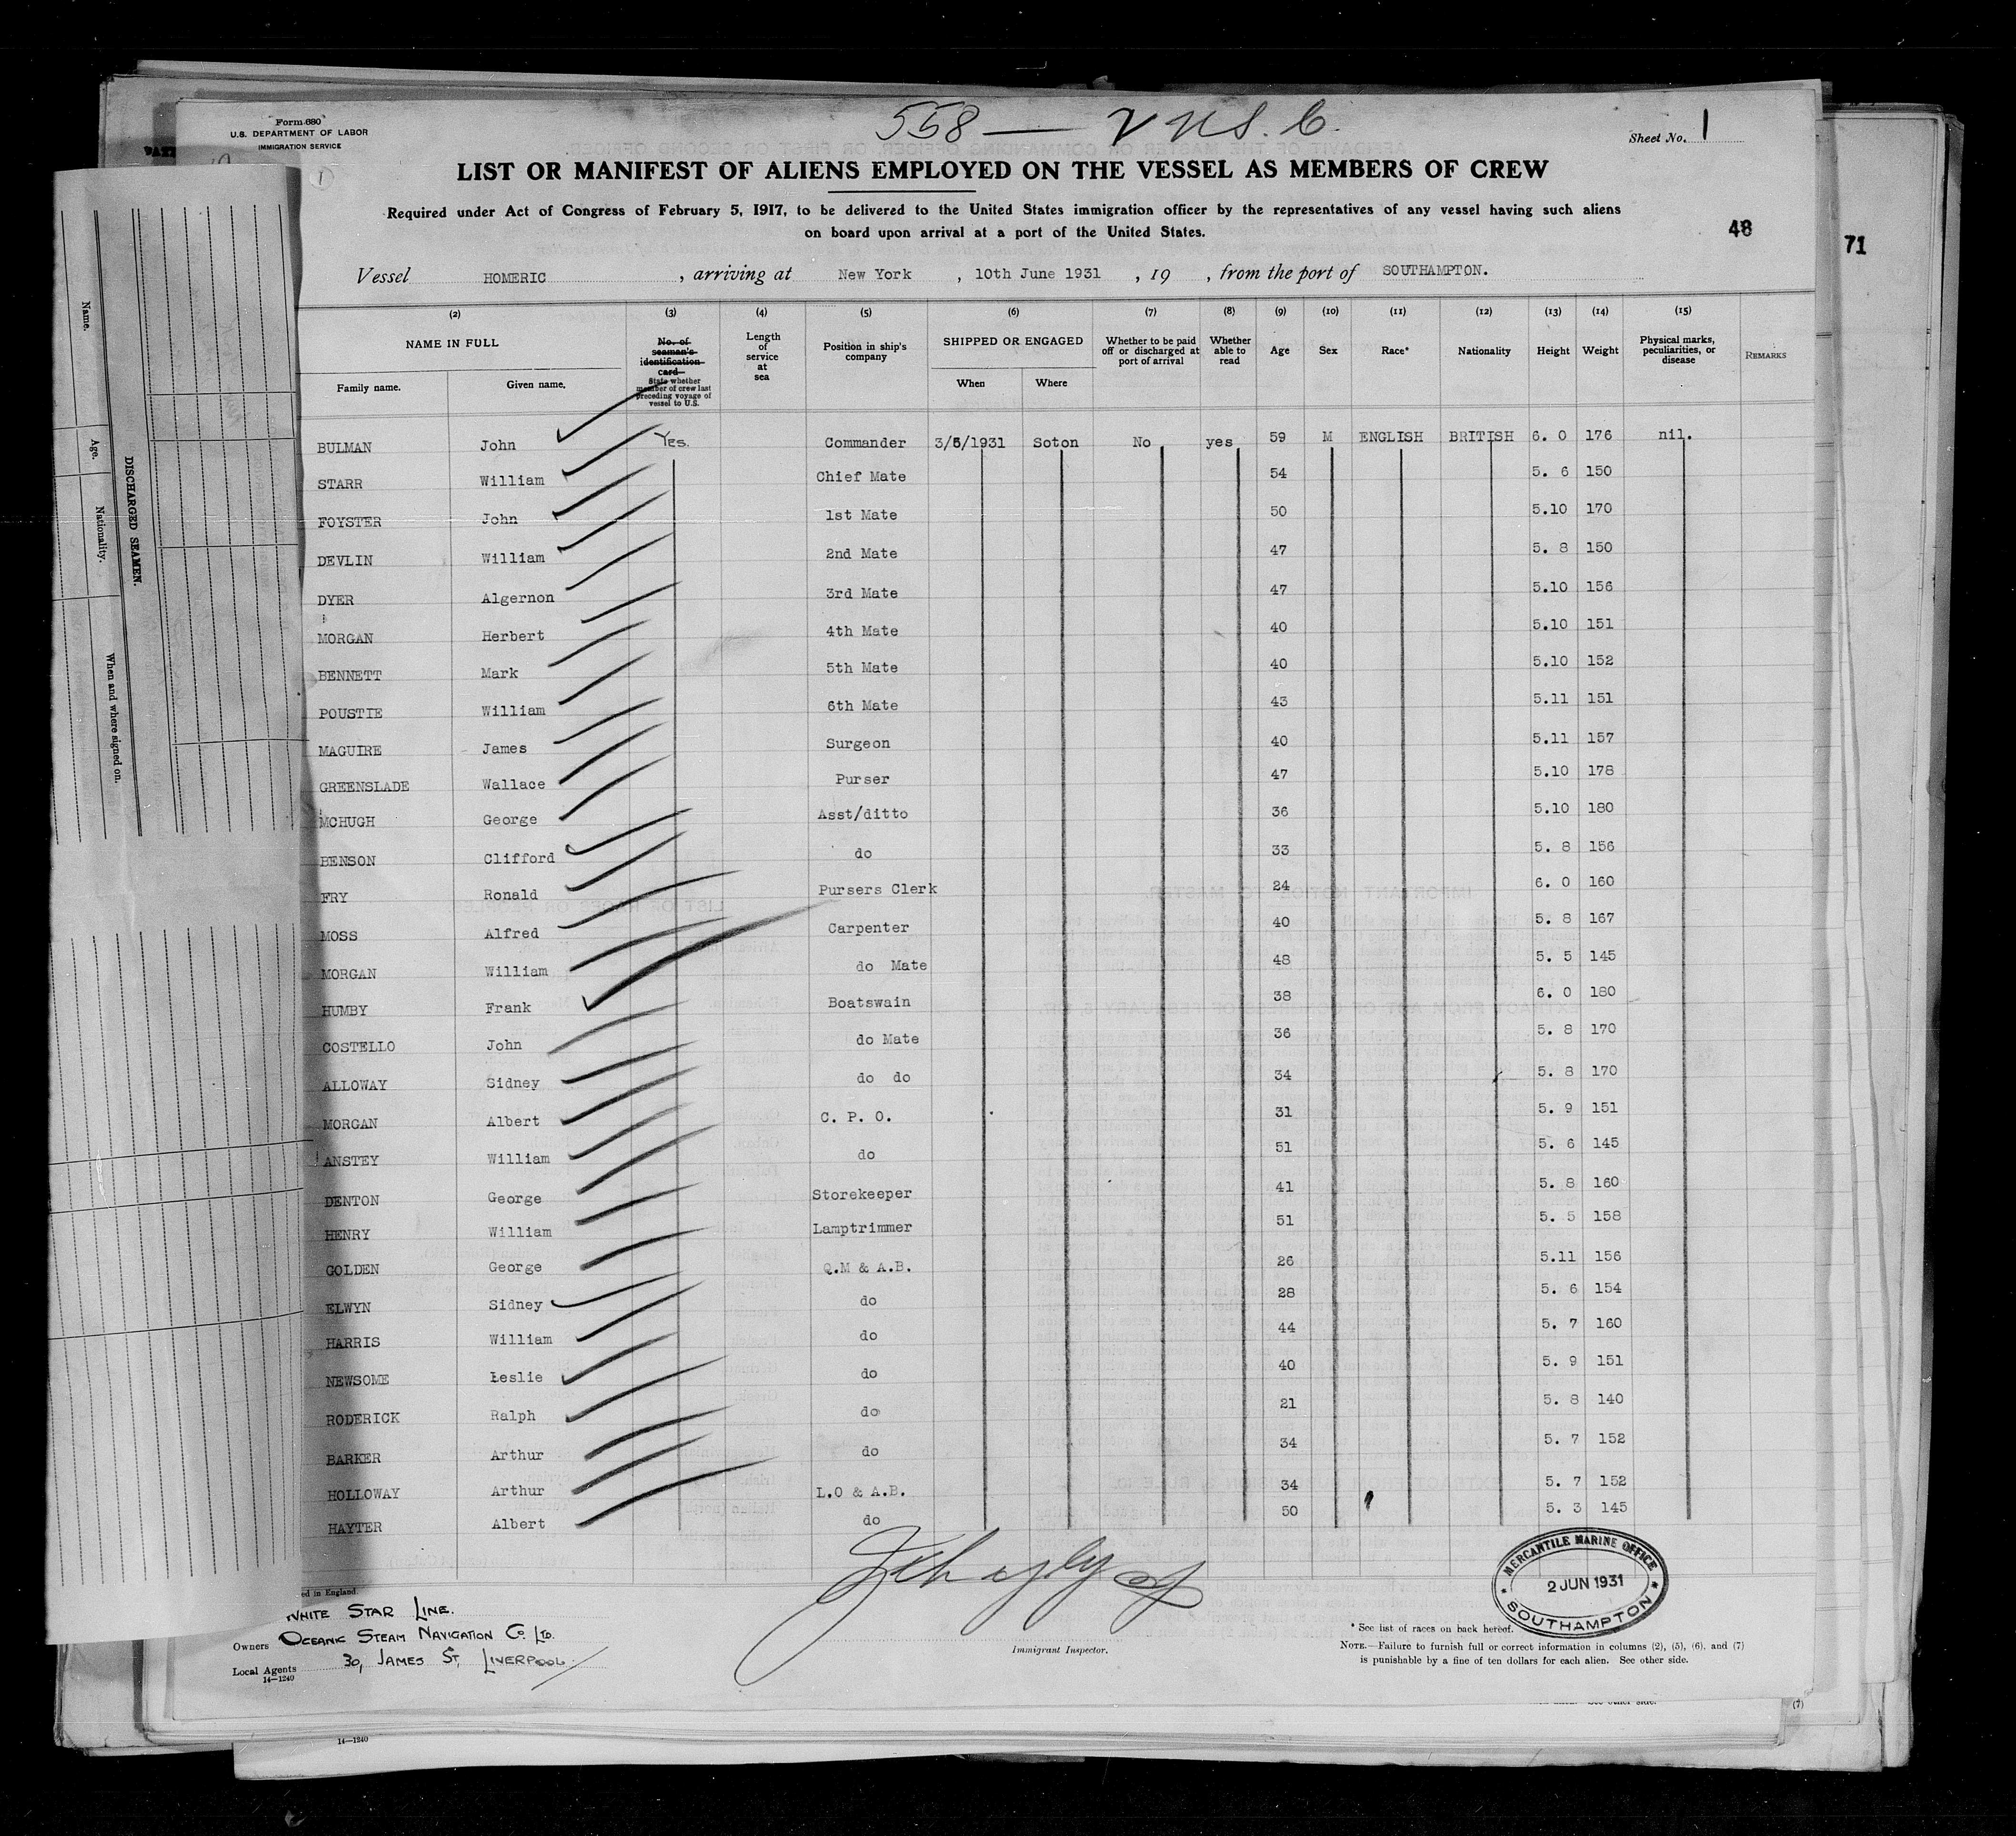 558 — V U.S.C.
Form 680
U.S. DEPARTMENT OF LABOR
IMMIGRATION SERVICE
Sheet No. 1
LIST OR MANIFEST OF ALIENS EMPLOYED ON THE VESSEL AS MEMBERS OF CREW
Required under Act of Congress of February 5, 1917, to be delivered to the United States immigration officer by the representatives of any vessel having such aliens
on board upon arrival at a port of the United States.
48
71
Vessel HOMERIC , arriving at New York , 10th June 1931 , 19 , from the port of SOUTHAMPTON.
(2) (3) (4) (5) (6) (7) (8) (9) (10) (11) (12) (13) (14) (15)
NAME IN FULL
Family name. Given name.
No. of seaman's identification card
State whether member of crew last preceding voyage of vessel to U.S.
Length of service at sea
Position in ship's company
SHIPPED OR ENGAGED
When Where
Whether to be paid off or discharged at port of arrival
Whether able to read
Age Sex Race* Nationality Height Weight
Physical marks, peculiarities, or disease
REMARKS
BULMAN John Yes. Commander 3/5/1931 Soton No yes 59 M ENGLISH BRITISH 6. 0 176 nil.
STARR William Chief Mate 54 5. 6 150
FOYSTER John 1st Mate 50 5.10 170
DEVLIN William 2nd Mate 47 5. 8 150
DYER Algernon 3rd Mate 47 5.10 156
MORGAN Herbert 4th Mate 40 5.10 151
BENNETT Mark 5th Mate 40 5.10 152
POUSTIE William 6th Mate 43 5.11 151
MAGUIRE James Surgeon 40 5.11 157
GREENSLADE Wallace Purser 47 5.10 178
MCHUGH George Asst/ditto 36 5.10 180
BENSON Clifford do 33 5. 8 156
FRY Ronald Pursers Clerk 24 6. 0 160
MOSS Alfred Carpenter 40 5. 8 167
MORGAN William do Mate 48 5. 5 145
HUMBY Frank Boatswain 38 6. 0 180
COSTELLO John do Mate 36 5. 8 170
ALLOWAY Sidney do do 34 5. 8 170
MORGAN Albert C. P. O. 31 5. 9 151
ANSTEY William do 51 5. 6 145
DENTON George Storekeeper 41 5. 8 160
HENRY William Lamptrimmer 51 5. 5 158
GOLDEN George Q.M & A.B. 26 5.11 156
ELWYN Sidney do 28 5. 6 154
HARRIS William do 44 5. 7 160
NEWSOME Leslie do 40 5. 9 151
RODERICK Ralph do 21 5. 8 140
BARKER Arthur do 34 5. 7 152
HOLLOWAY Arthur L.O & A.B. 34 5. 7 152
HAYTER Albert do 50 5. 3 145
ed in England.
WHITE STAR LINE.
Owners OCEANIC STEAM NAVIGATION CO. LTD.
Local Agents 30, JAMES ST, LIVERPOOL.
14—1240
Immigrant Inspector.
MERCANTILE MARINE OFFICE
2 JUN 1931
SOUTHAMPTON
* See list of races on back hereof.
NOTE.—Failure to furnish full or correct information in columns (2), (5), (6), and (7)
is punishable by a fine of ten dollars for each alien. See other side.
14—1240
(7)
DISCHARGED SEAMEN.
Name.
Age.
Nationality.
When and where signed on.